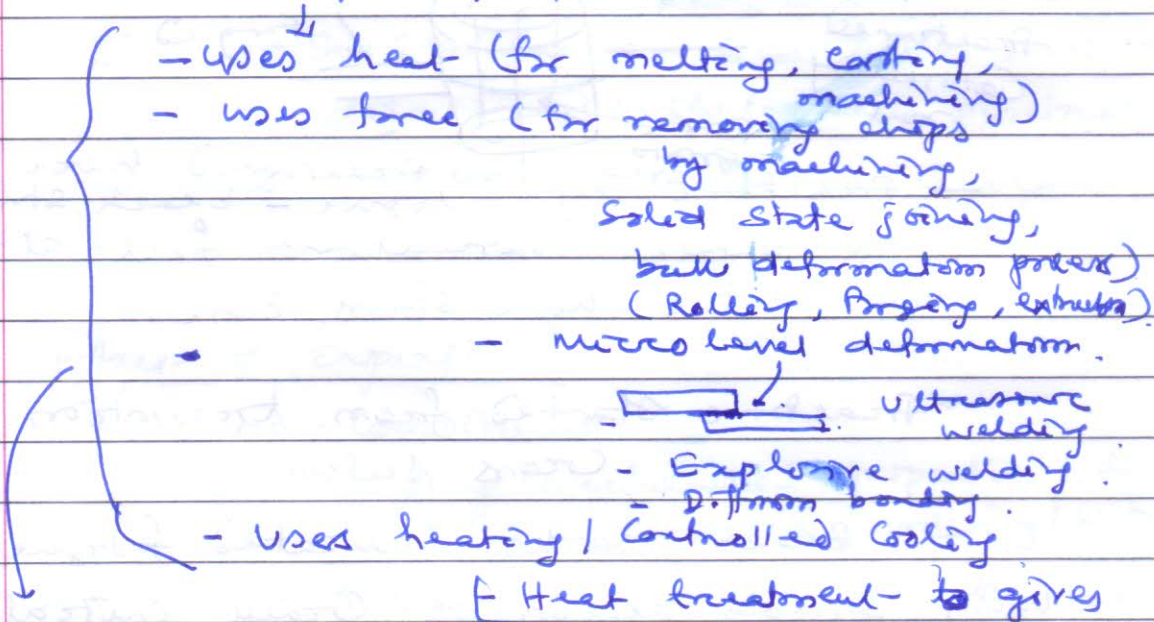 - uses heat (for melting, casting,
machining)
- uses force (for removing chips
by machining,
Solid State joining,
bulk deformation process)
(Rolling, Forging, extrusion)
- Micro level deformation.
- Ultrasonic
welding.
- Explosive welding.
- Diffusion bonding.
- uses heating / Controlled Cooling
[- Heat treatment - to gives